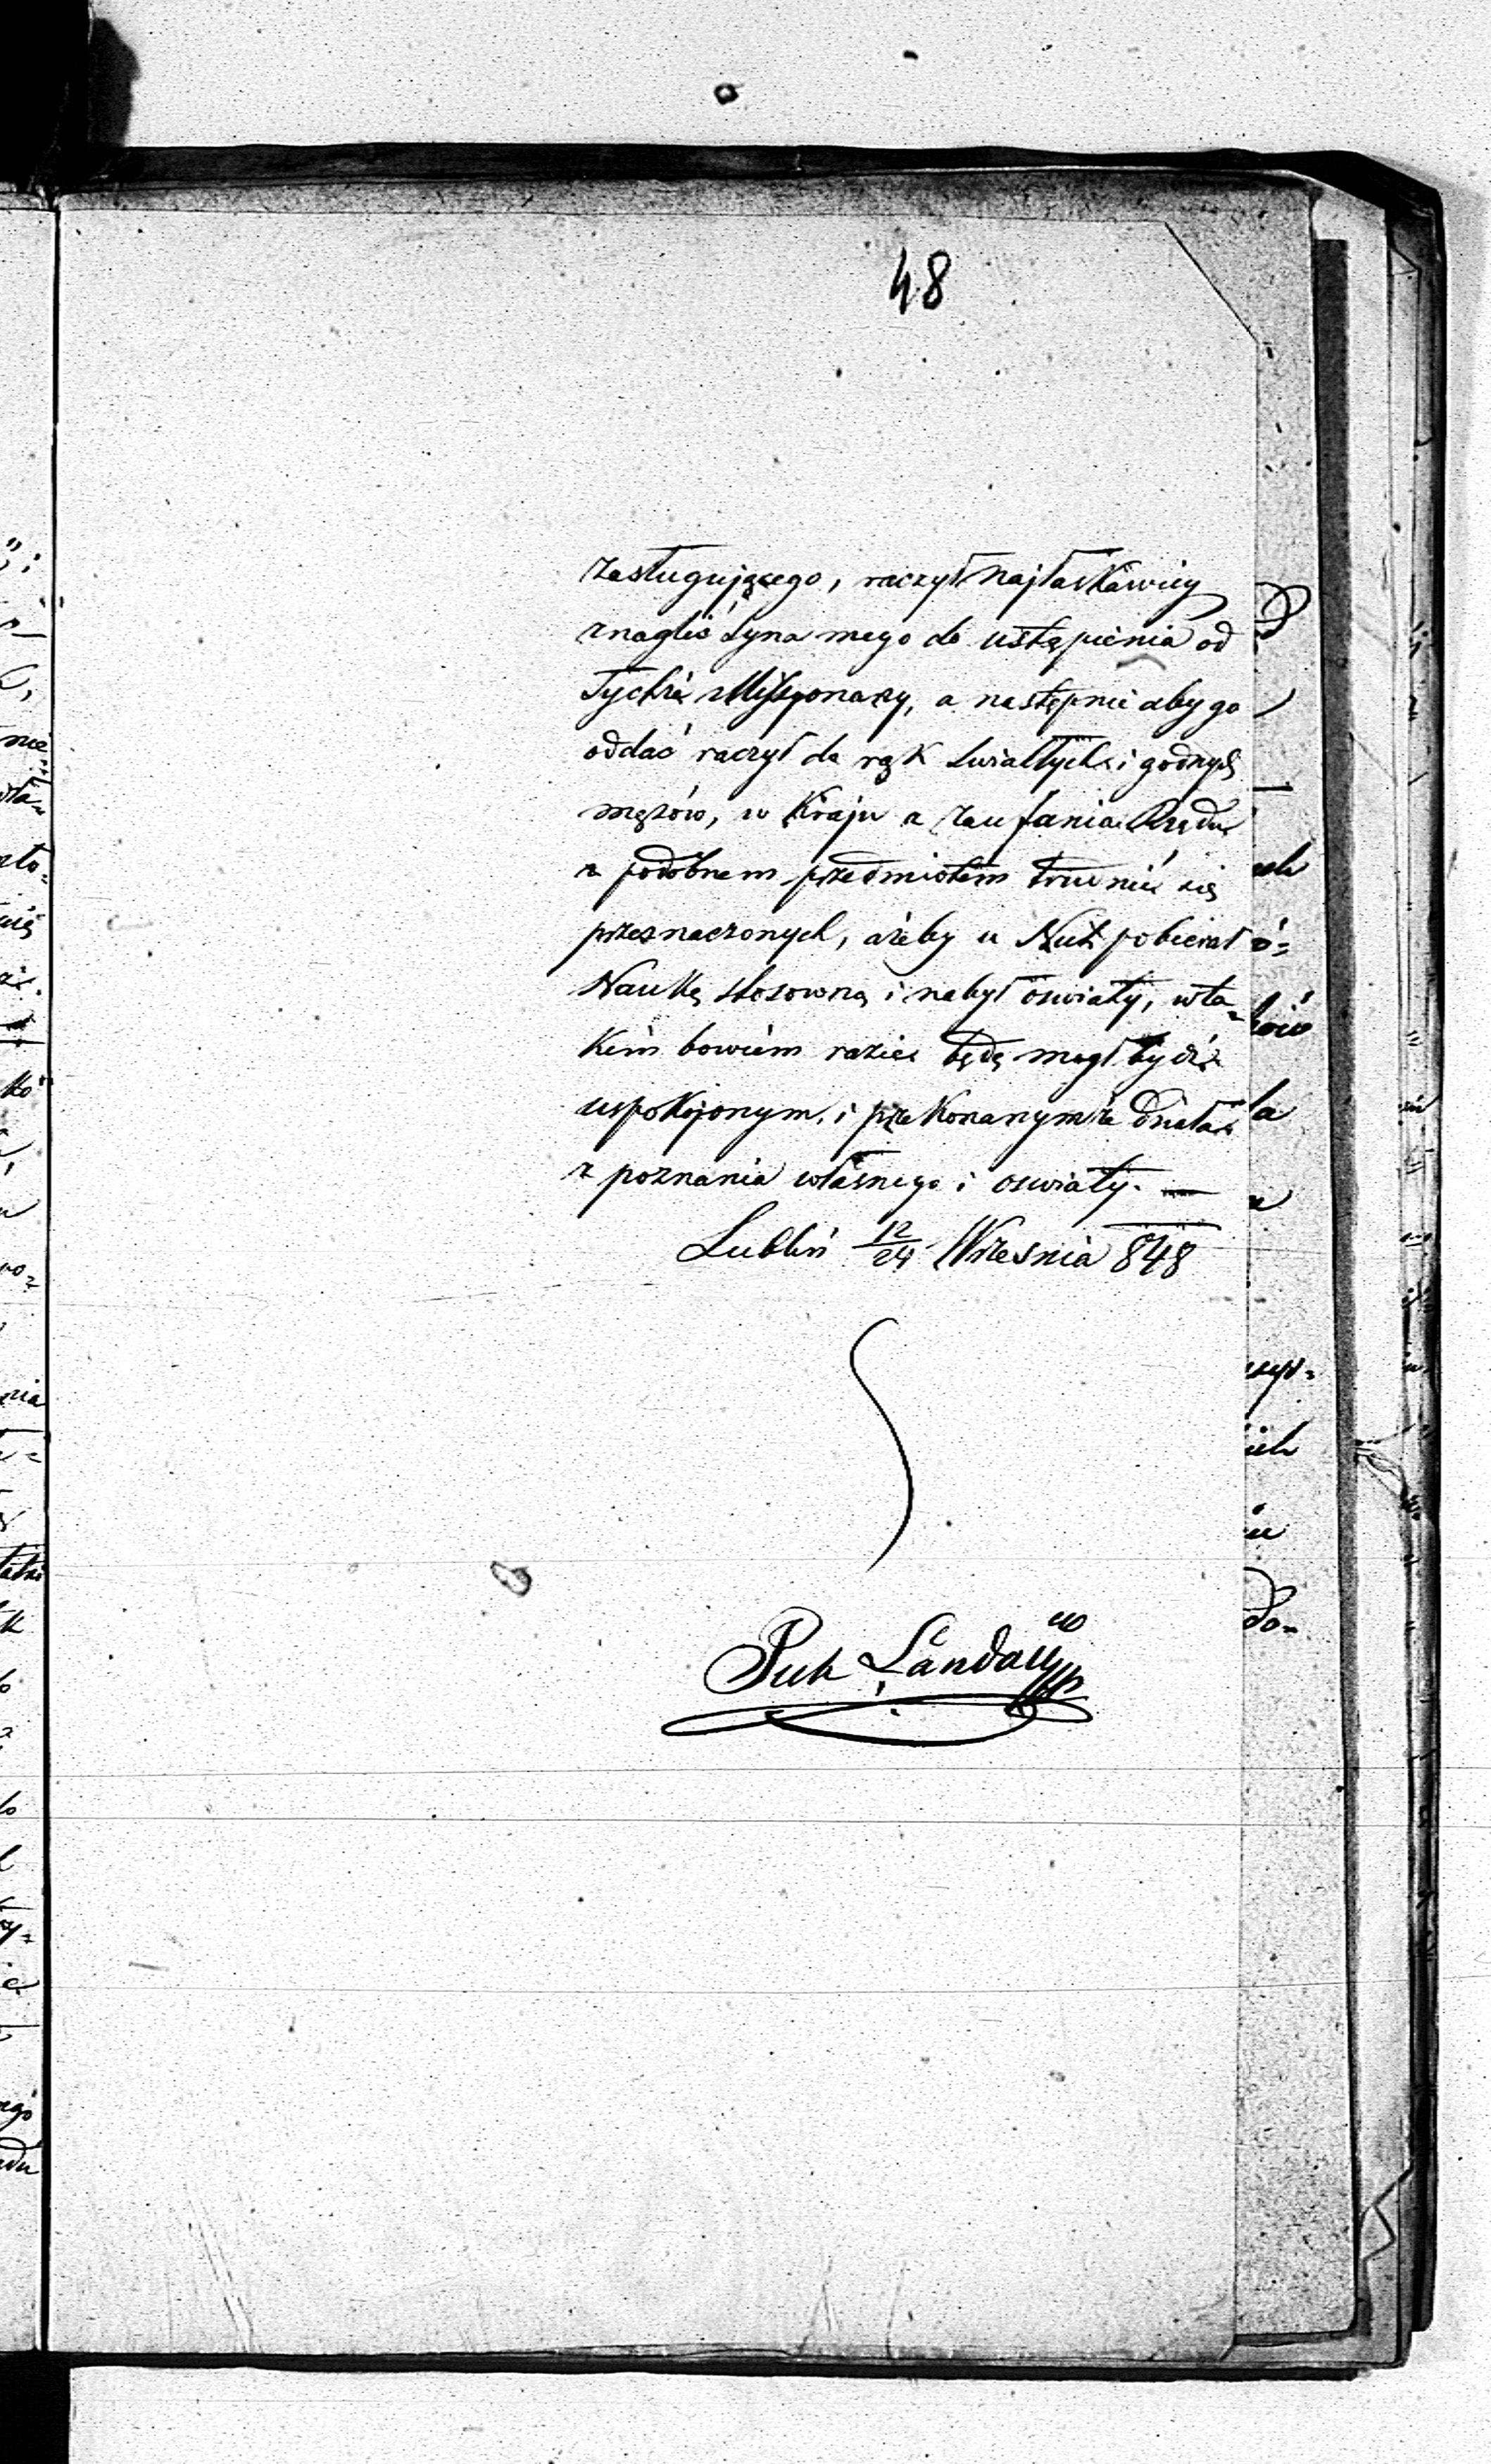 48
zasługującego, raczył najłaskawiey
znaglić Syna mego do ustąpienia od
tychże Missyonarzy, a następnie aby go
oddać raczył do rąk światłych i godnych
mężów, w Kraju z zaufania Rządu
z podobnem przedmiotem trudnić się
przeznaczonych, ażeby u Nich pobierał
Naukę stosowną i nabył oswiaty, wta-
kim bowiem razie będę mogł bydź
uspokojonym, i przekonanym że działa
z poznania własnego i oswiaty. —
Lublin 12/24 Wrzesnia 848
Landau